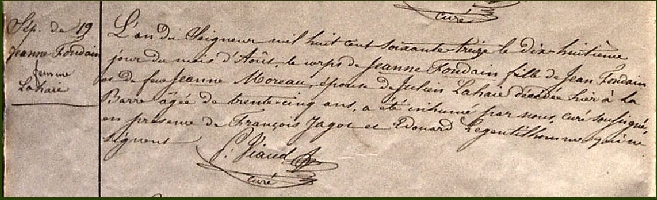 curé
Sép. de 19
Jeanne Foudain
femme
Lahaie
L'an du Seigneur mil huit cent soixante treize le dix-huitième
jour du mois d'Août, le corps de Jeanne Foudain fille de Jean Foudain
et de feue Jeanne Moreau, épouse de Julien Lahaie décédée hier à la
Barre âgée de trente-cinq ans, a été inhumé par nous, curé soussigné,
en présence de François Jagot et Edouard Legentilhomme qui ne
signent
Viaud
curé